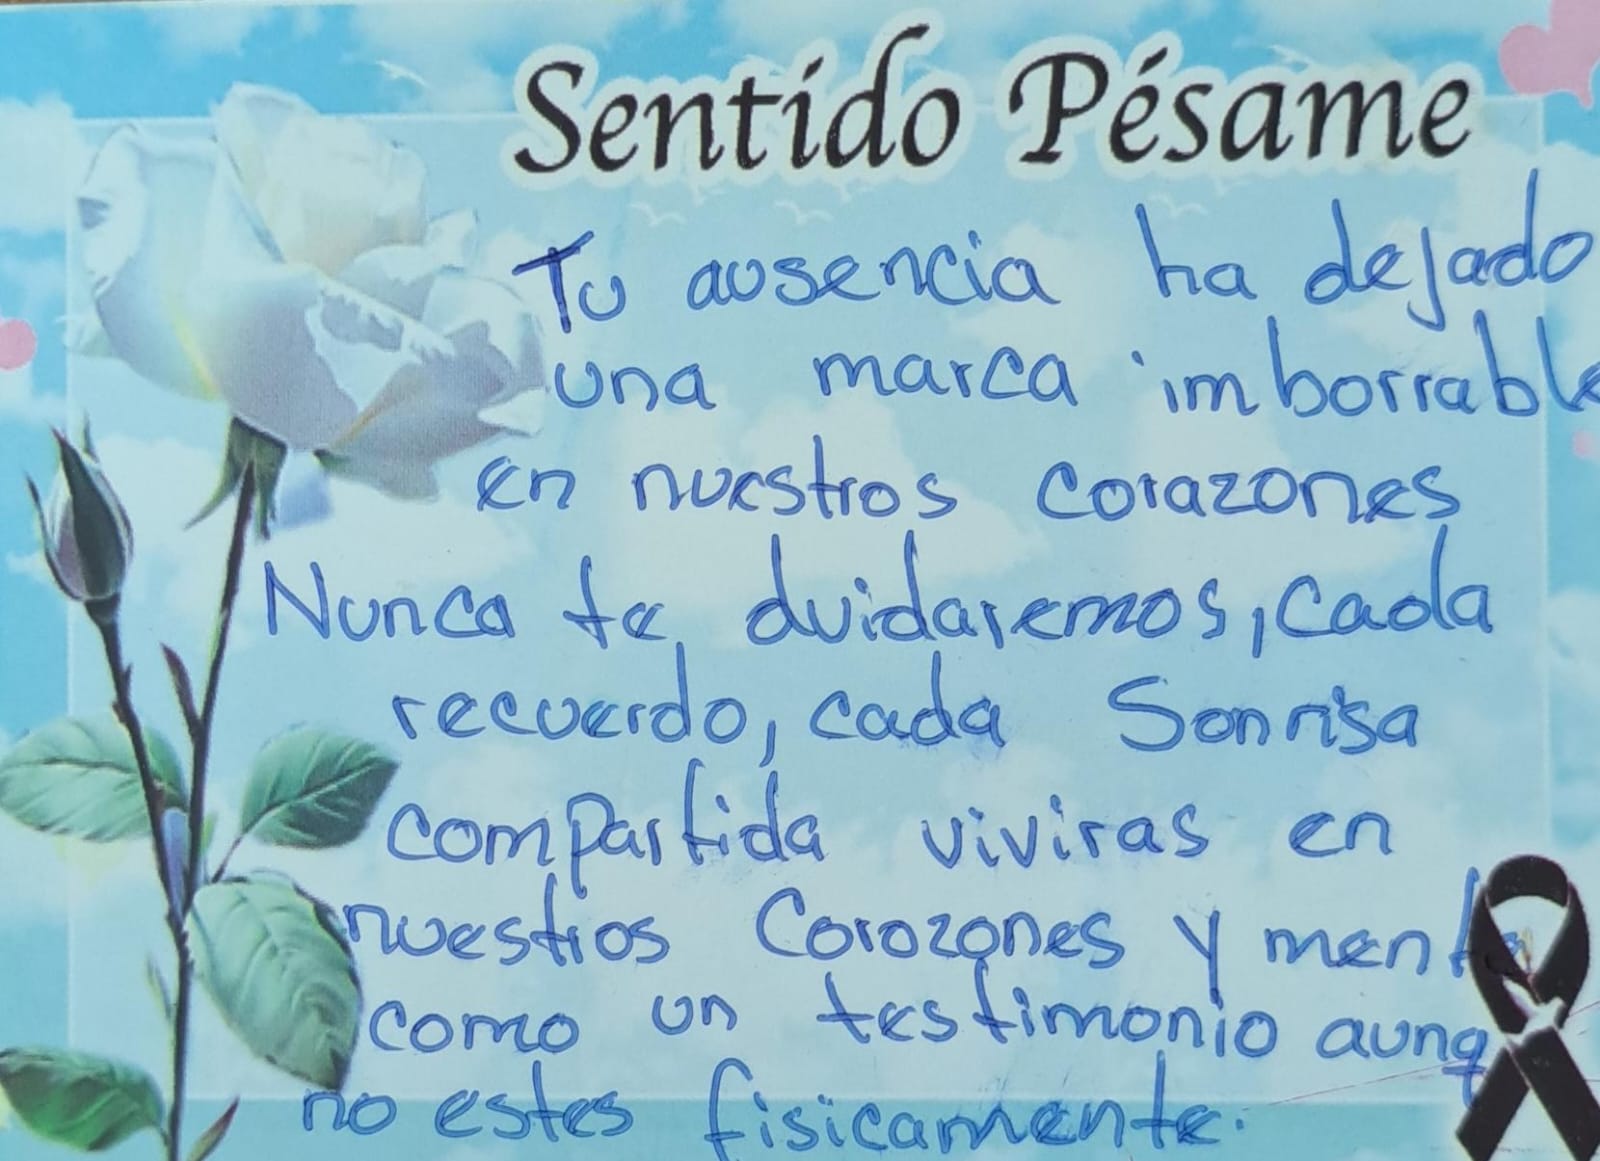 Sentido Pésame
Tu ausencia ha dejado
una marca imborrable
en nuestros corazones
Nunca te dvidaremos, cada
recuerdo, cada Sonrisa
compartida viviras en
nuestros Corozones y mente
como un testimonio aunq
no estes fisicamente.